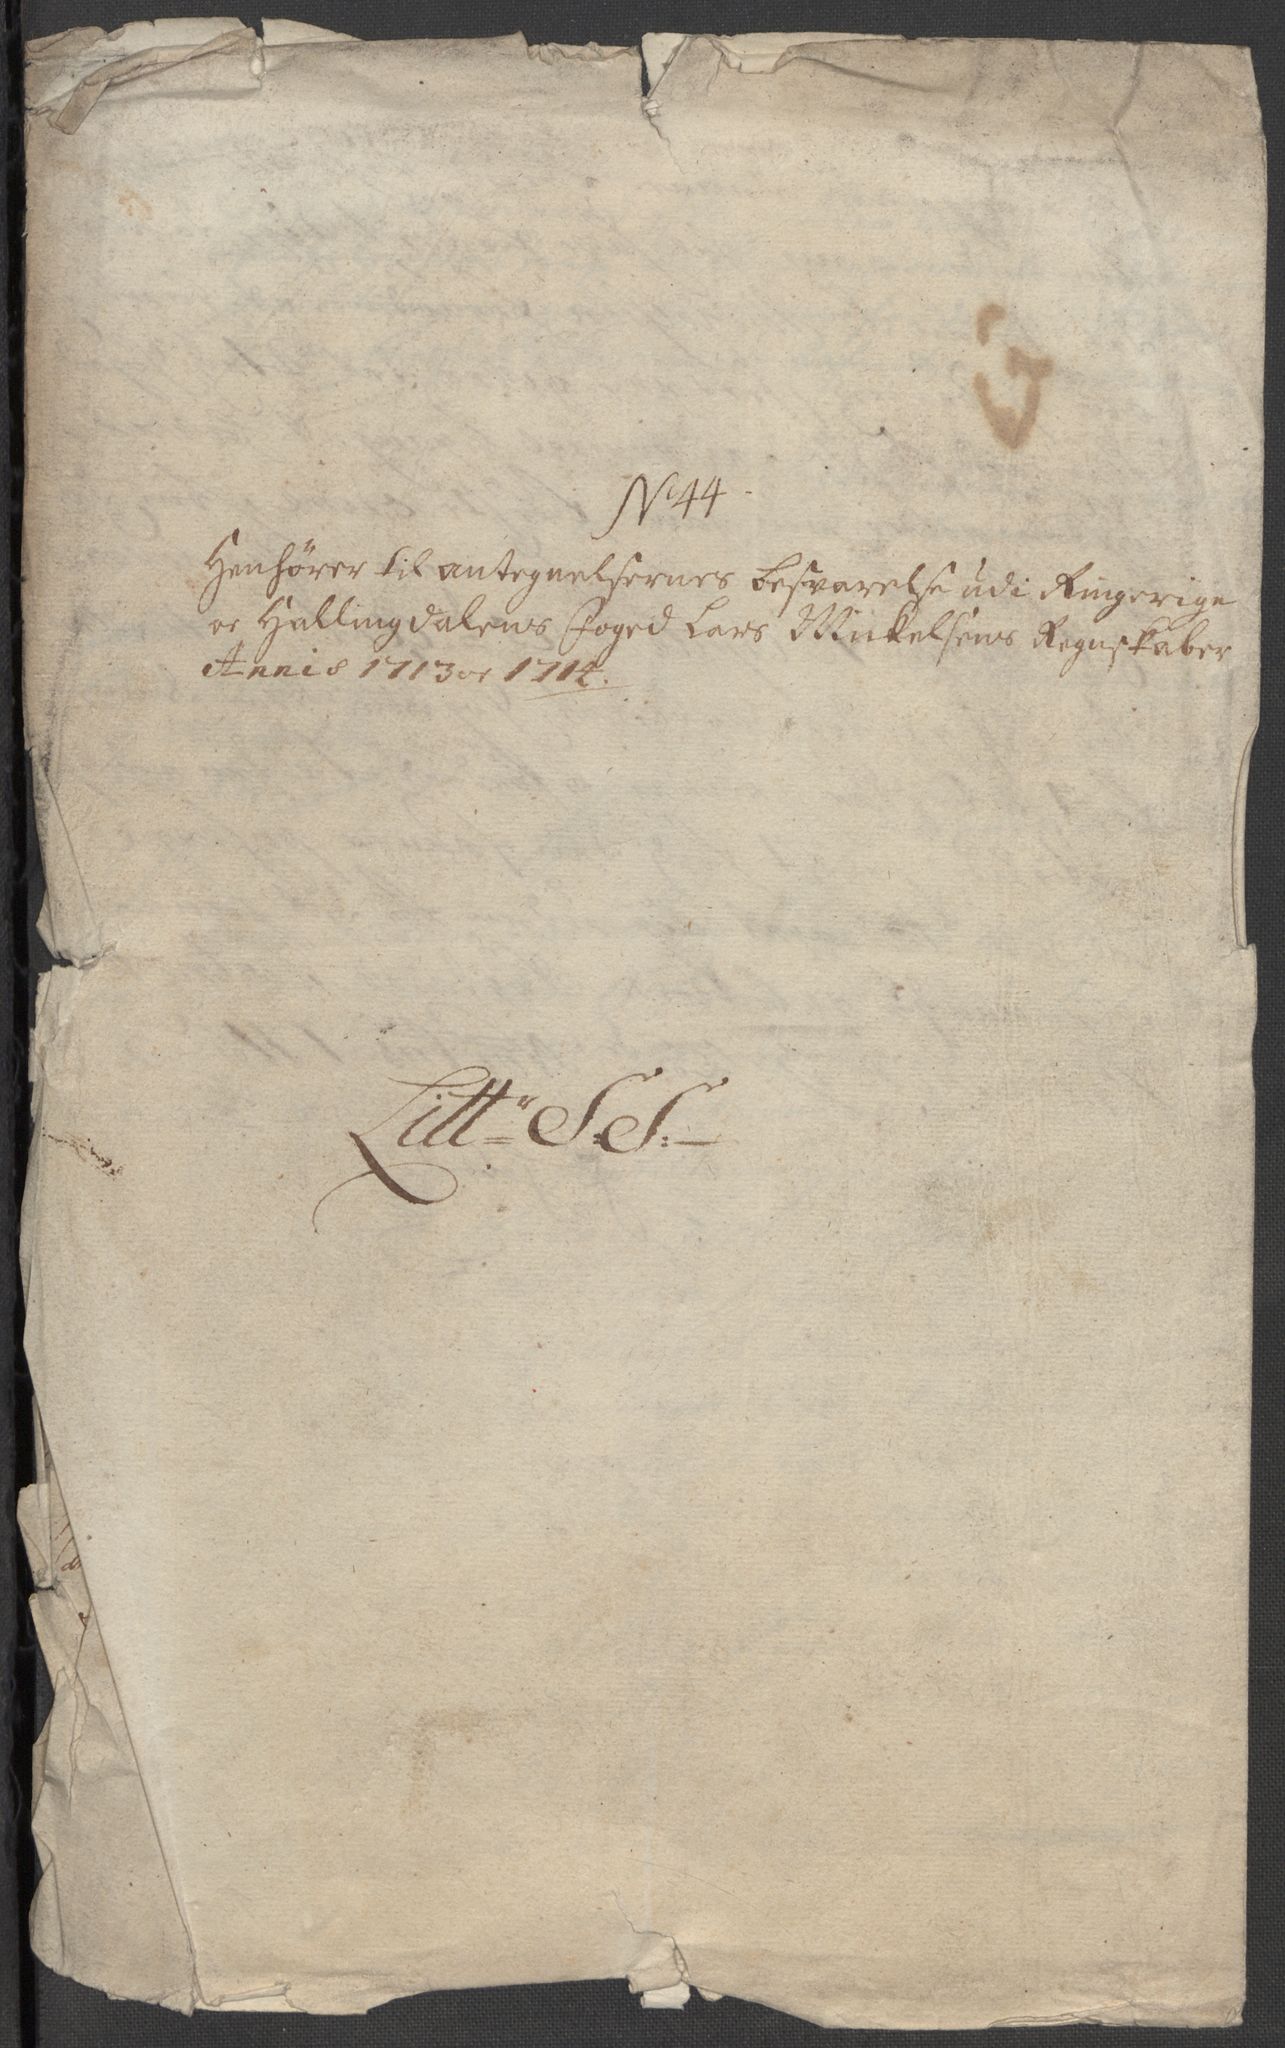 No 44
Henhörer til antegnelsernes besvarelse udi Ringerige
oc Hallingdalens Foged Lars Mickelsens Regnskaber
Annis 1713 oc 1714.
Litt: S:S: